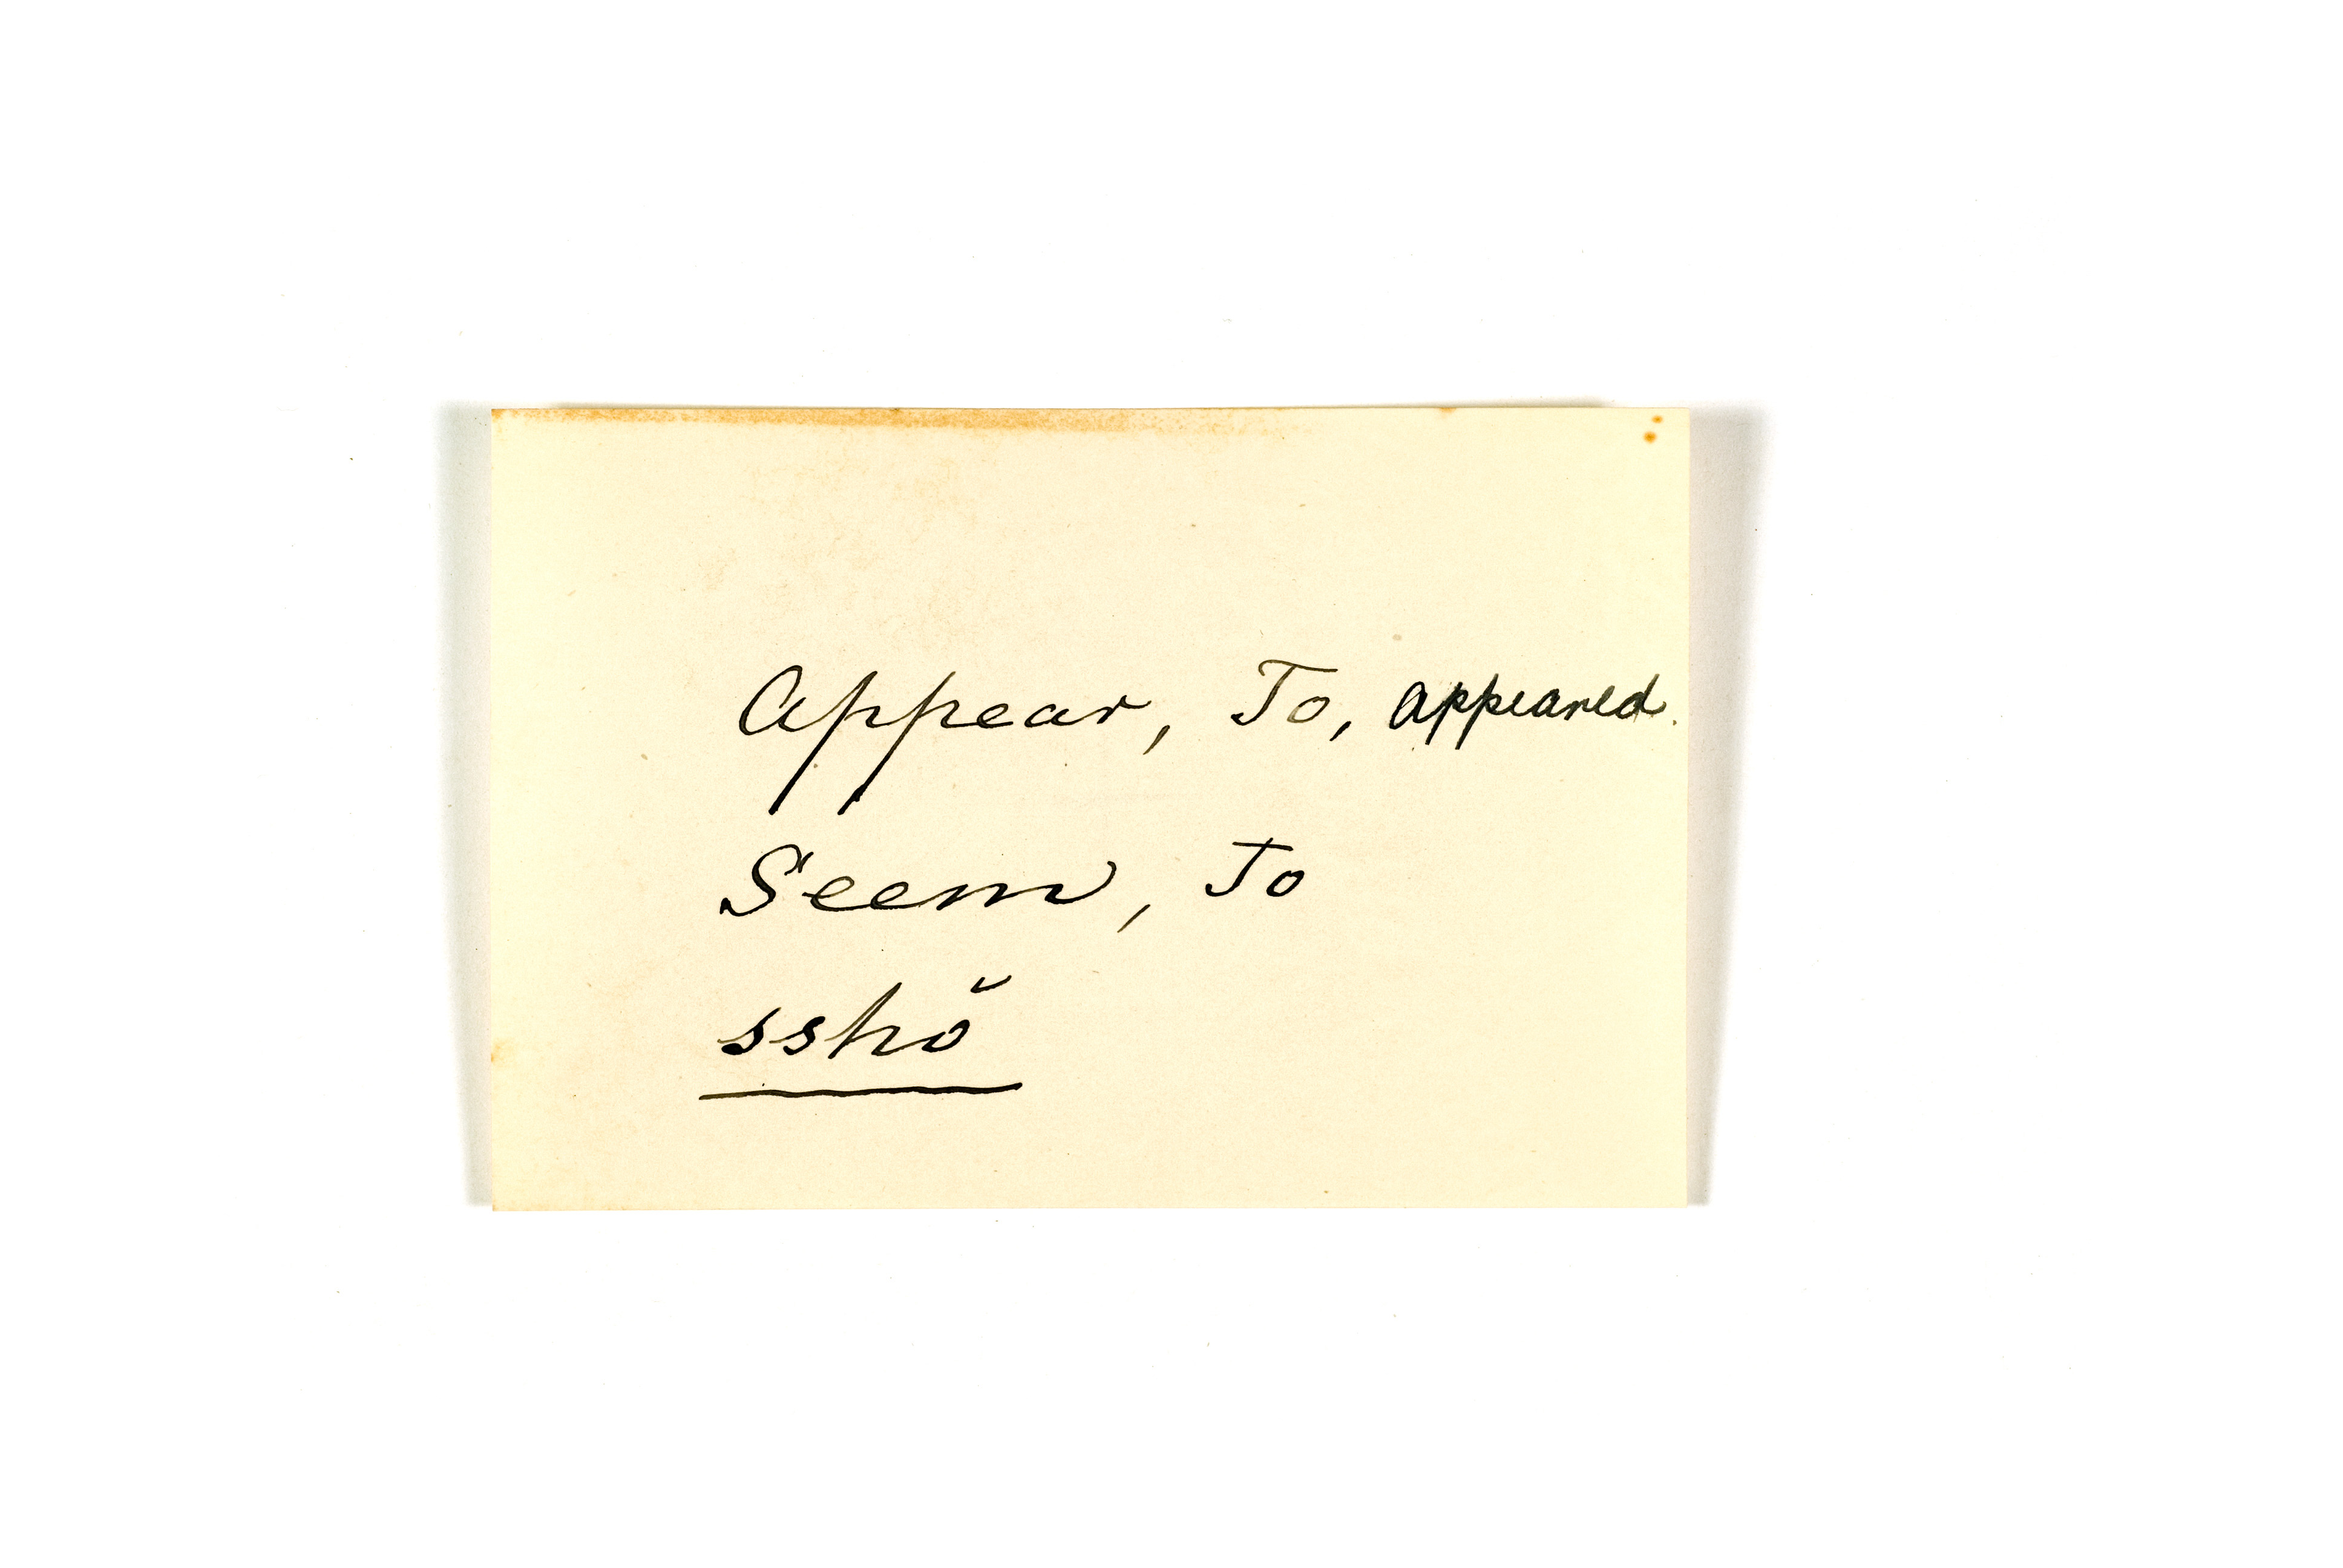 Appear, To, appeared.
Seem, To
sshŏ